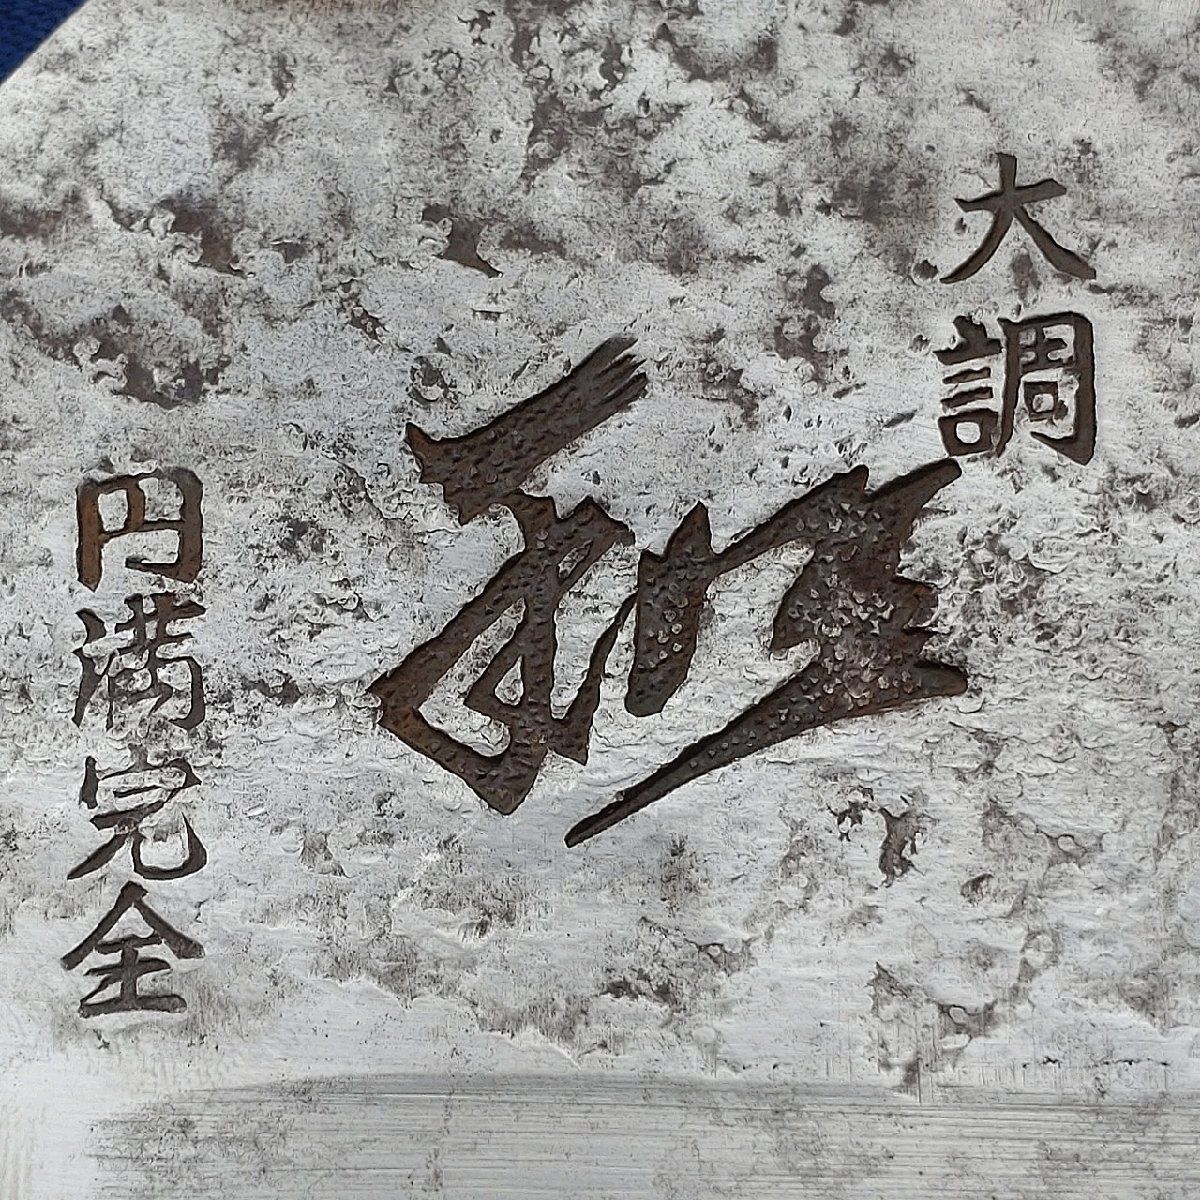 大調
和
円満完全